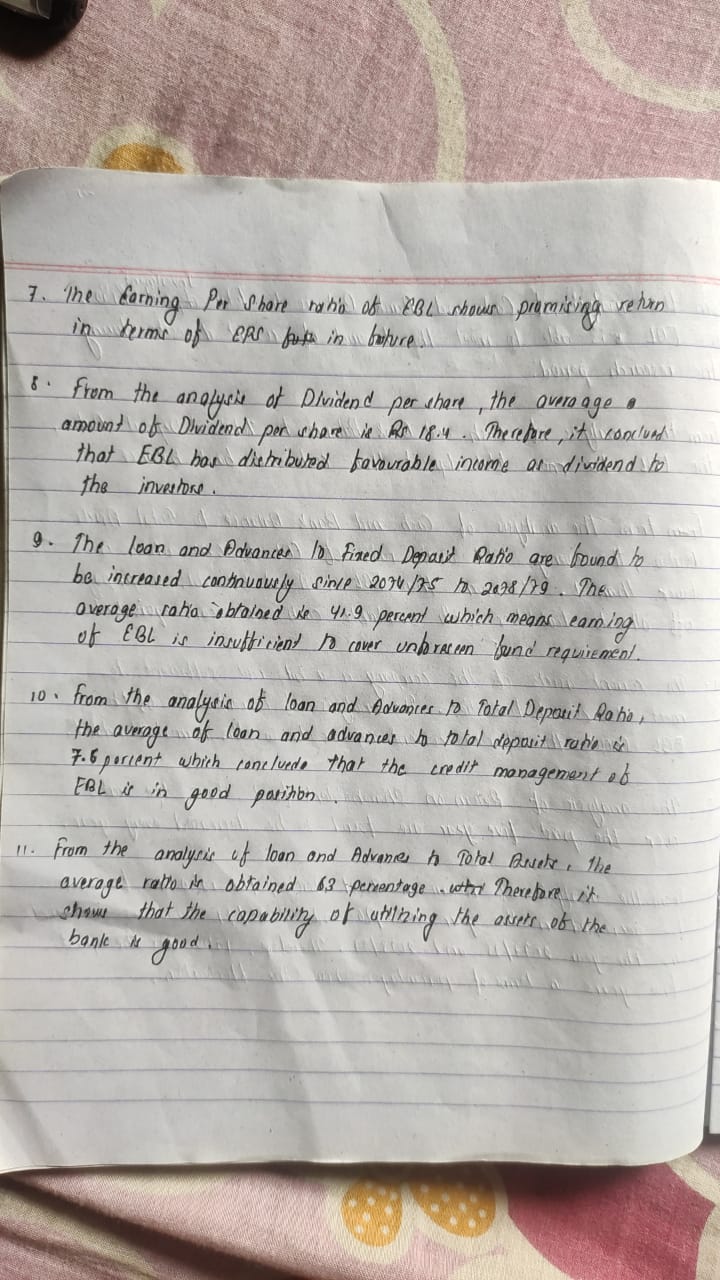 7. The Earning Per Share ratio of EBL shows promising return
in terms of EPS in future.
8. From the analysis of Dividend per share, the average
amount of Dividend per share is Rs 18.4. Therefore, it conclued
that EBL has distributed favourable income as dividend to
the investors.
9. The loan and Advances to Fixed Deposit Ratio are found to
be increased continuously since 2074/75 to 2078/79. The
average ratio obtained is 41.9 percent which means earning
of EBL is insufficient to cover unforeseen fund requirement.
10. From the analysis of loan and Advances to Total Deposit Ratio,
the average of loan and advances to total deposit ratio is
7.6 percent which concluede that the credit management of
EBL is in good position.
11. From the analysis of loan and Advances to Total Assets, the
average ratio is obtained 63 percentage. Therefore it
shows that the capability of utilizing the assets of the
bank is good.